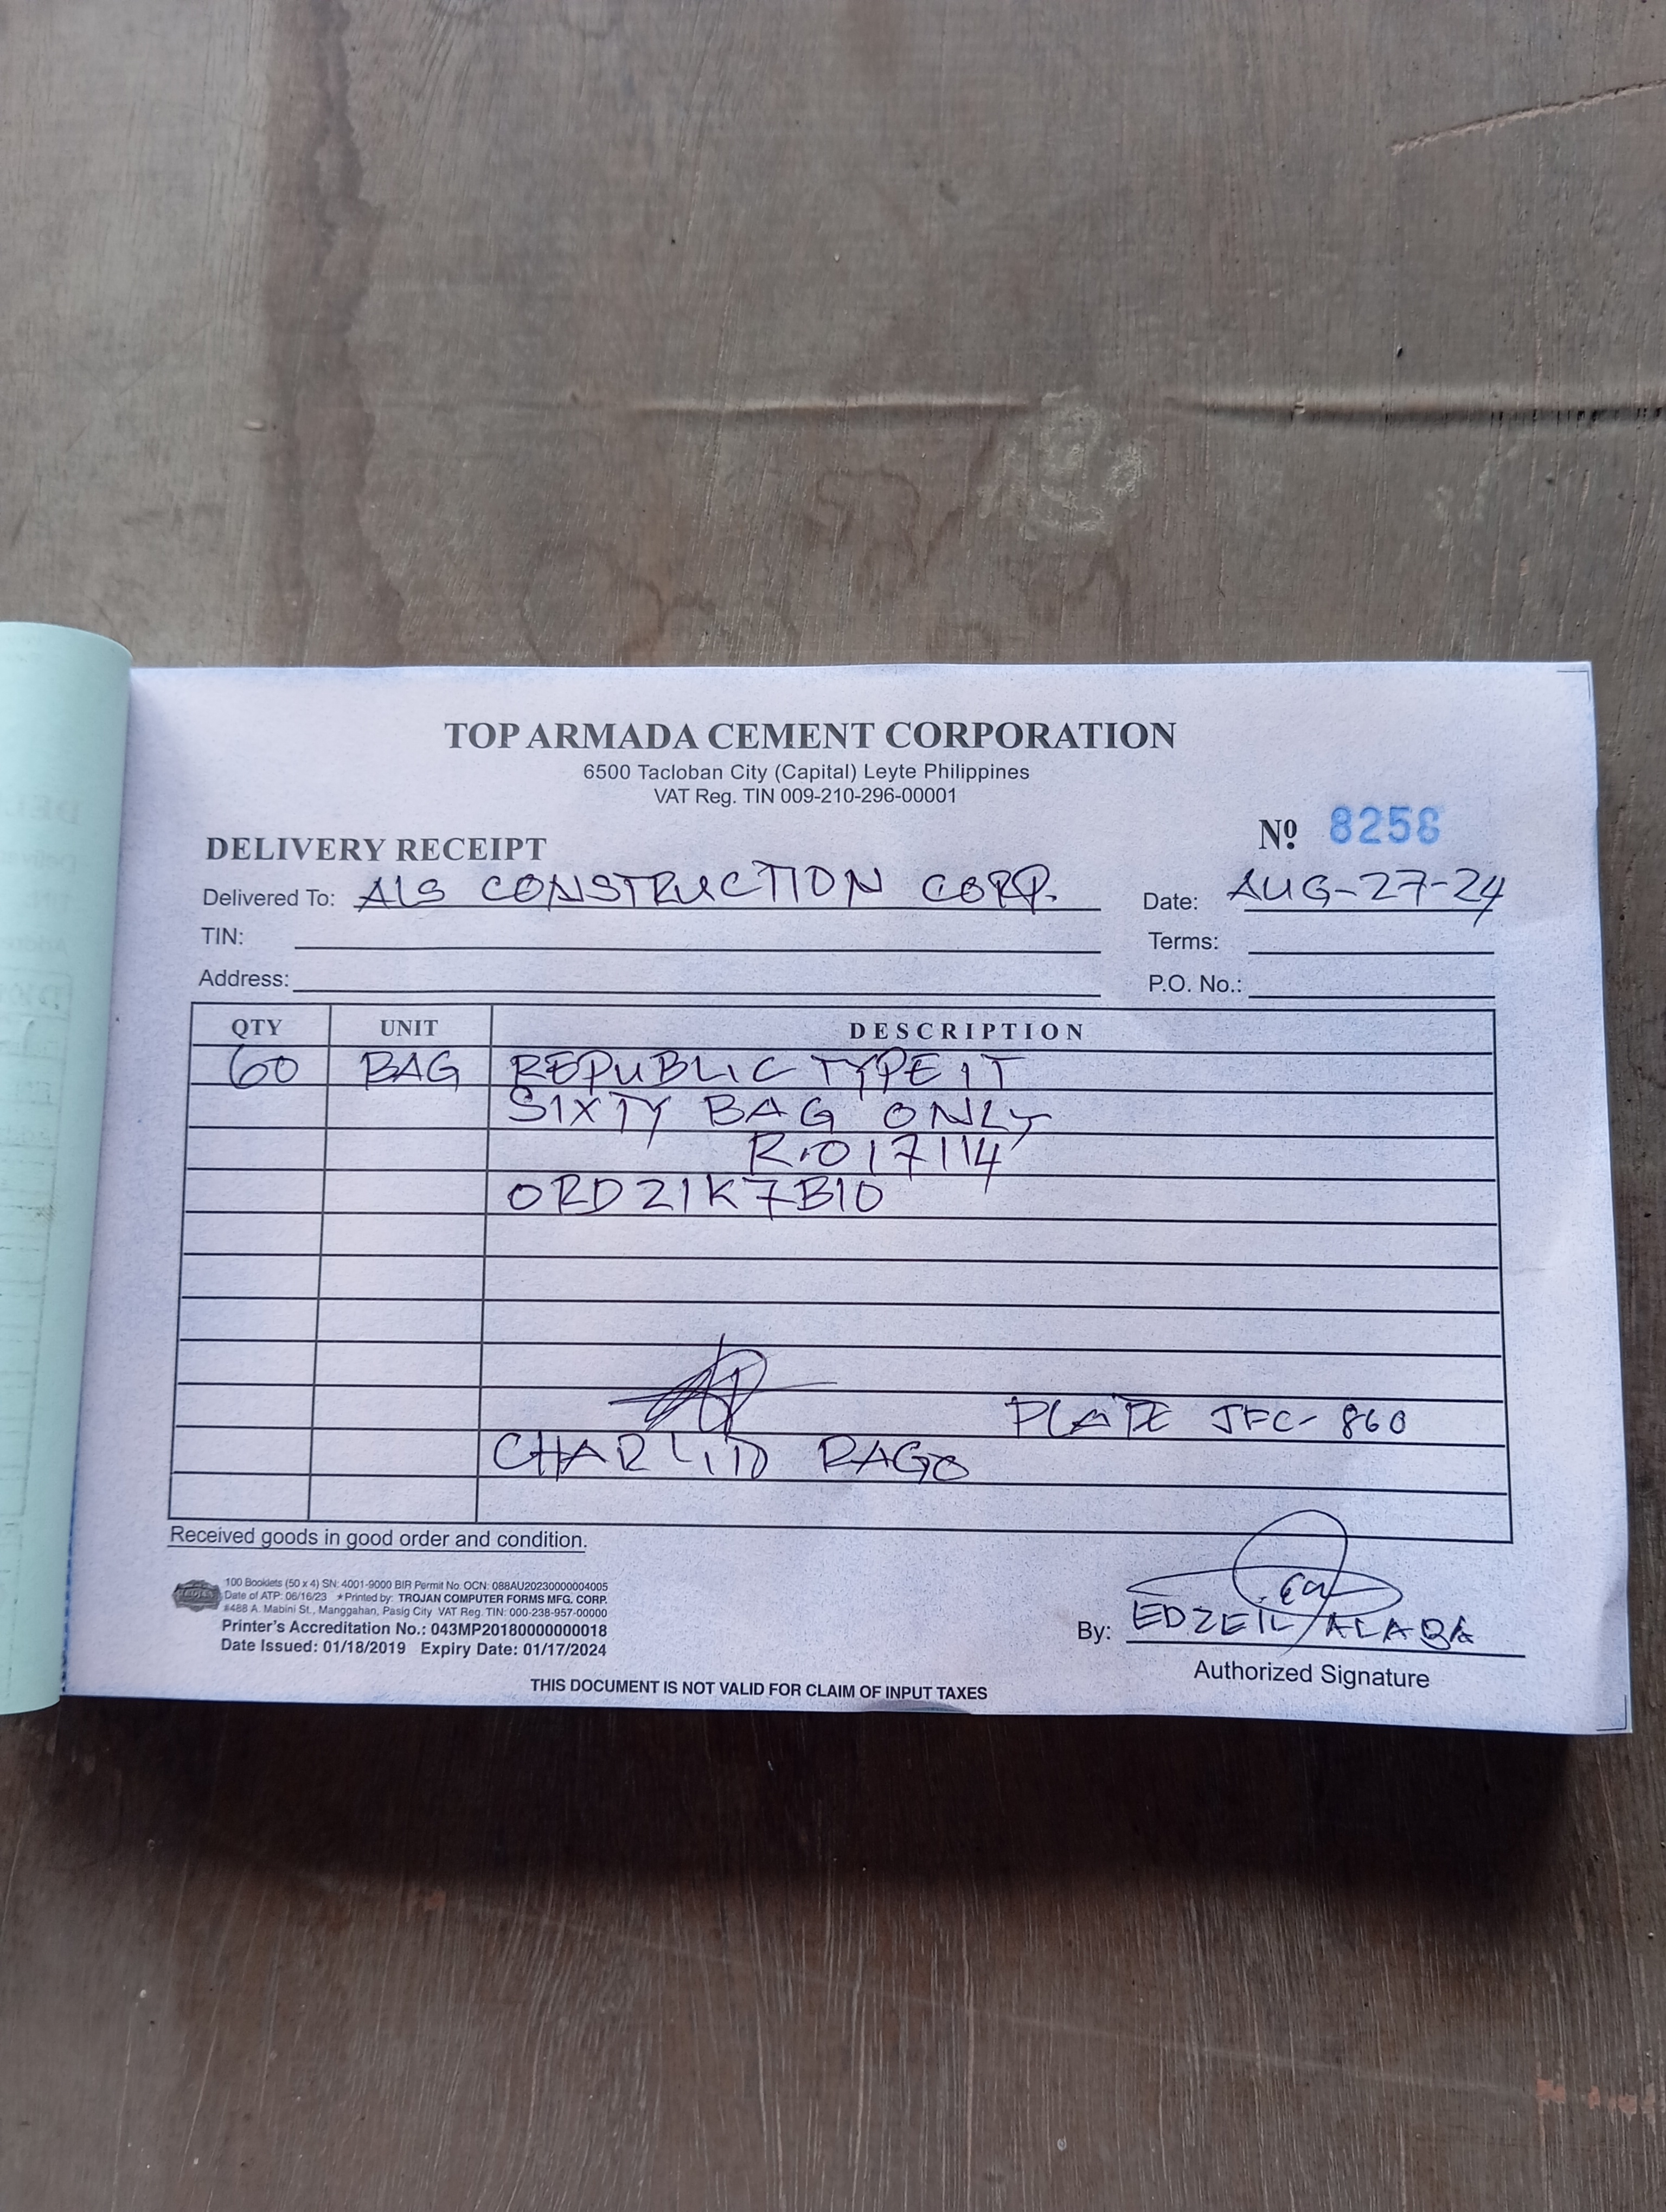 TOP ARMADA CEMENT CORPORATION
6500 Tacloban City (Capital) Leyte Philippines
VAT Reg. TIN 009-210-296-00001
DELIVERY RECEIPT
Nº 8258
Delivered To: ALS CONSTRUCTION CORP.
Date: AUG-27-24
TIN:
Terms:
Address:
P.O. No.:
QTY UNIT DESCRIPTION
60 BAG REPUBLIC TYPE 1T
SIXTY BAG ONLY
R.017114
ORD21K7B10
PLATE JFC-860
RAGO
Received goods in good order and condition.
100 Booklets (50 x 4) SN: 4001-9000 BIR Permit No. OCN: 088AU20230000004005
Date of ATP: 06/16/23 *Printed by: TROJAN COMPUTER FORMS MFG. CORP.
#488 A. Mabini St., Manggahan, Pasig City VAT Reg. TIN: 000-238-957-00000
Printer's Accreditation No.: 043MP20180000000018
Date Issued: 01/18/2019 Expiry Date: 01/17/2024
By: EDZEIL ALABA
Authorized Signature
THIS DOCUMENT IS NOT VALID FOR CLAIM OF INPUT TAXES